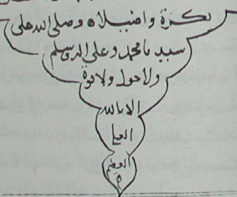 بكرة واصيلا ه وصلى الله على
سيدنا محمد وعلى اله وسلم
ولا حول ولا قوة
الا بالله
العلي
العظيم
ه